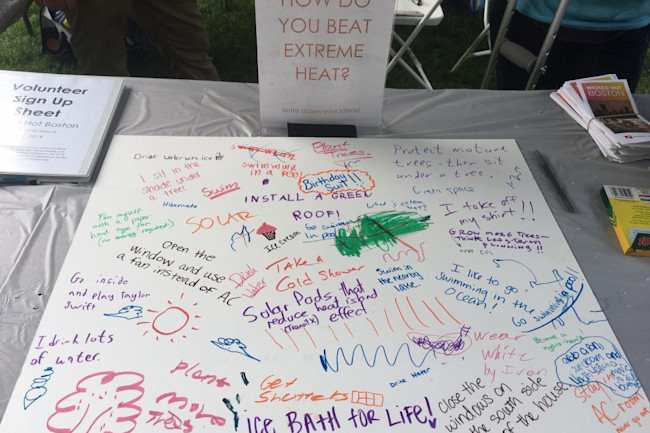 HOW DO
YOU BEAT
EXTREME
HEAT?
Write down your ideas!
Volunteer
Sign Up
Sheet
Hot Boston
WICKED HOT
BOSTON
Drink water with ice
I sit in the
shade under
a tree!
Swim
Swimming
in a Pool
Plant
Trees.
Birthday
Suit!!
Protect mature
trees - then sit
under a tree.
Green space
INSTALL A GREEN
ROOF!
Hibernate
Fan myself
with a paper
hand type fan
(no energy required)
SOLAR
Ice cream
Go swimming
in pool
I take off
my shirt!!
GROW MORE TREES-
Open the
window and use
a fan instead of AC
Drink
water
TAKE A
Cold Shower
Swim in the nearby
lake.
I like to go
Swimming in the
Ocean!
Go swimming in a pool!!
Go inside
and play Taylor
Swift
Solar Pods, that
reduce heat island
effect
I drink lots
of water.
Wear
White
by Ivan
Drink Water
Plant
More
Trees
Get
Shutters
ICE BATH FOR LIFE!
Close the
windows on
the south side
of the house
Stay in
AC room!